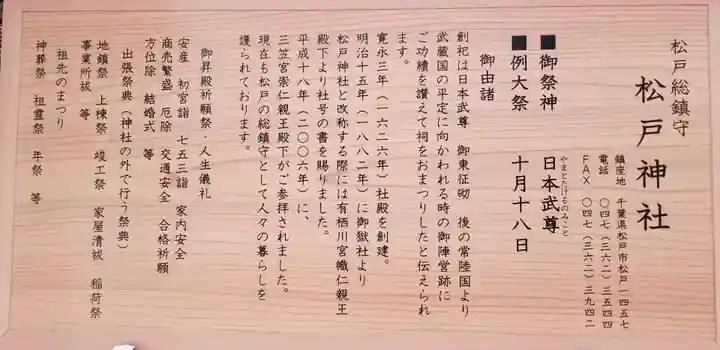 松戸総鎮守
松戸神社
鎮座地 千葉県松戸市松戸一四五七
電話 〇四七(三六二)三五四四
FAX 〇四七(三六二)三九四二
■御祭神 日本武尊
やまとたけるのみこと
■例大祭 十月十八日
御由諸
創祀は日本武尊 御東征砌 後の常陸国より
武蔵国の平定に向かわれる時の御陣営跡に
ご功績を讃えて祠をおまつりしたと伝えられ
ます。
寛永三年(一六二六年)社殿を創建。
明治十五年(一八八二年)に御嶽社より
松戸神社と改称する際には有栖川宮幟仁親王
殿下より社号の書を賜りました。
平成十八年(二〇〇六年)に、
三笠宮崇仁親王殿下がご参拝されました。
現在も松戸の総鎮守として人々の暮らしを
護られております。
御昇殿祈願祭・人生儀礼
安産 初宮詣 七五三詣 家内安全
商売繁盛 厄除 交通安全 合格祈願
方位除 結婚式 等
出張祭典(神社の外で行う祭典)
地鎮祭 上棟祭・竣工祭 家屋清祓 稲荷祭
事業所祓 等
祖先のまつり
神葬祭 祖霊祭 年祭 等